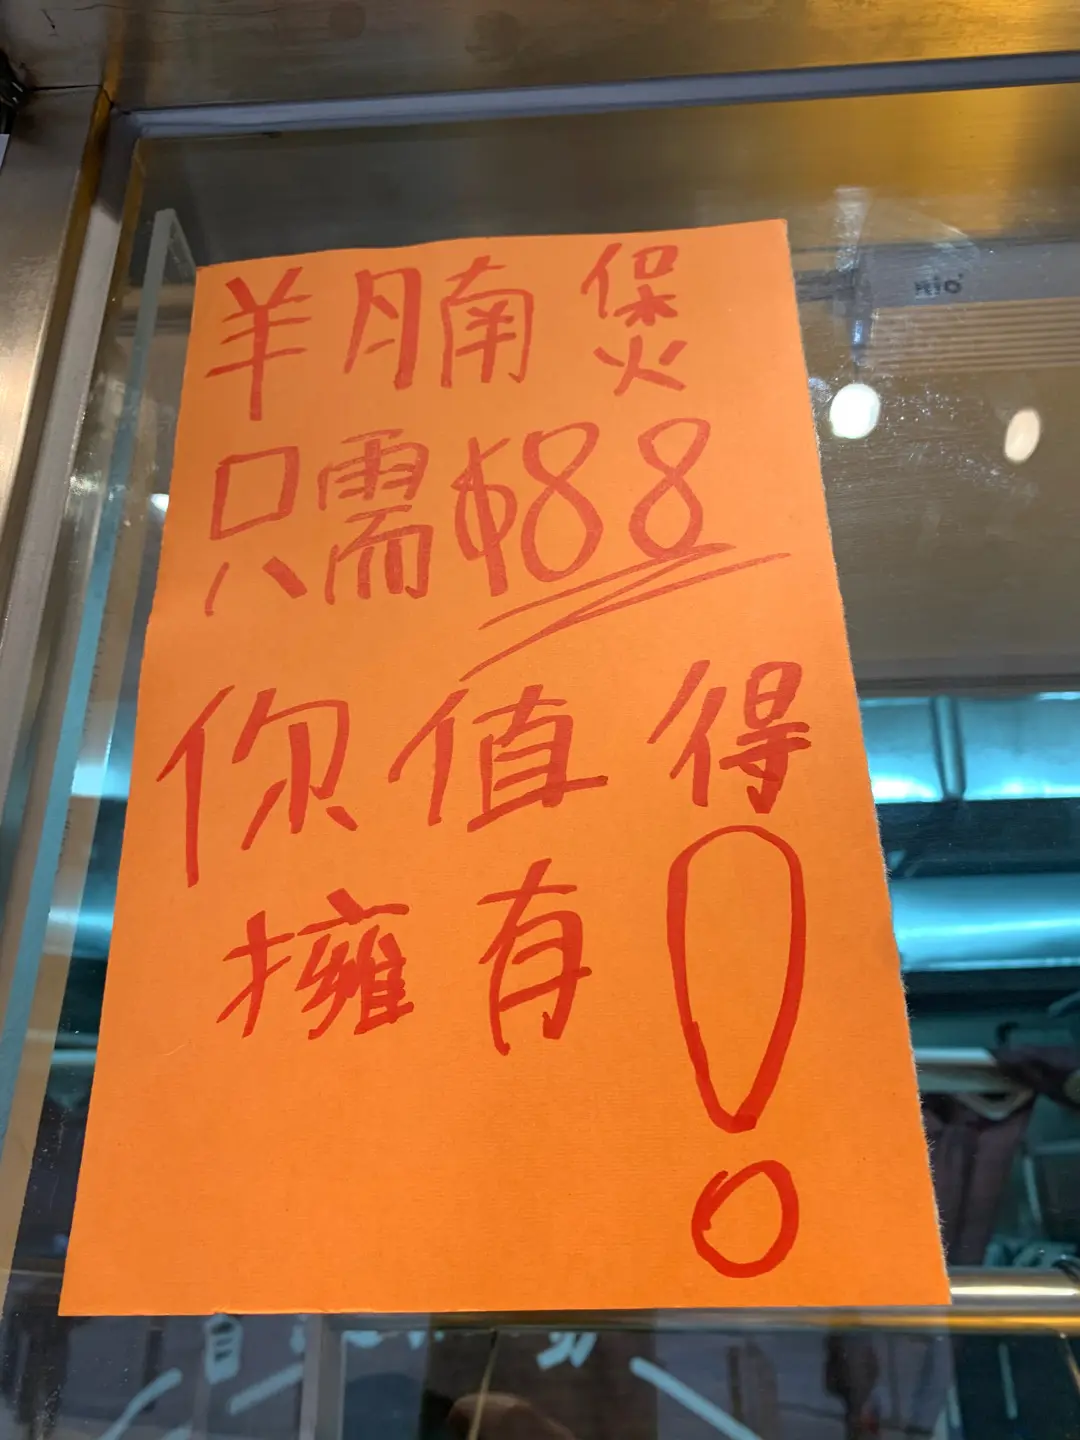 羊腩煲
只需$88
你值得
擁有！